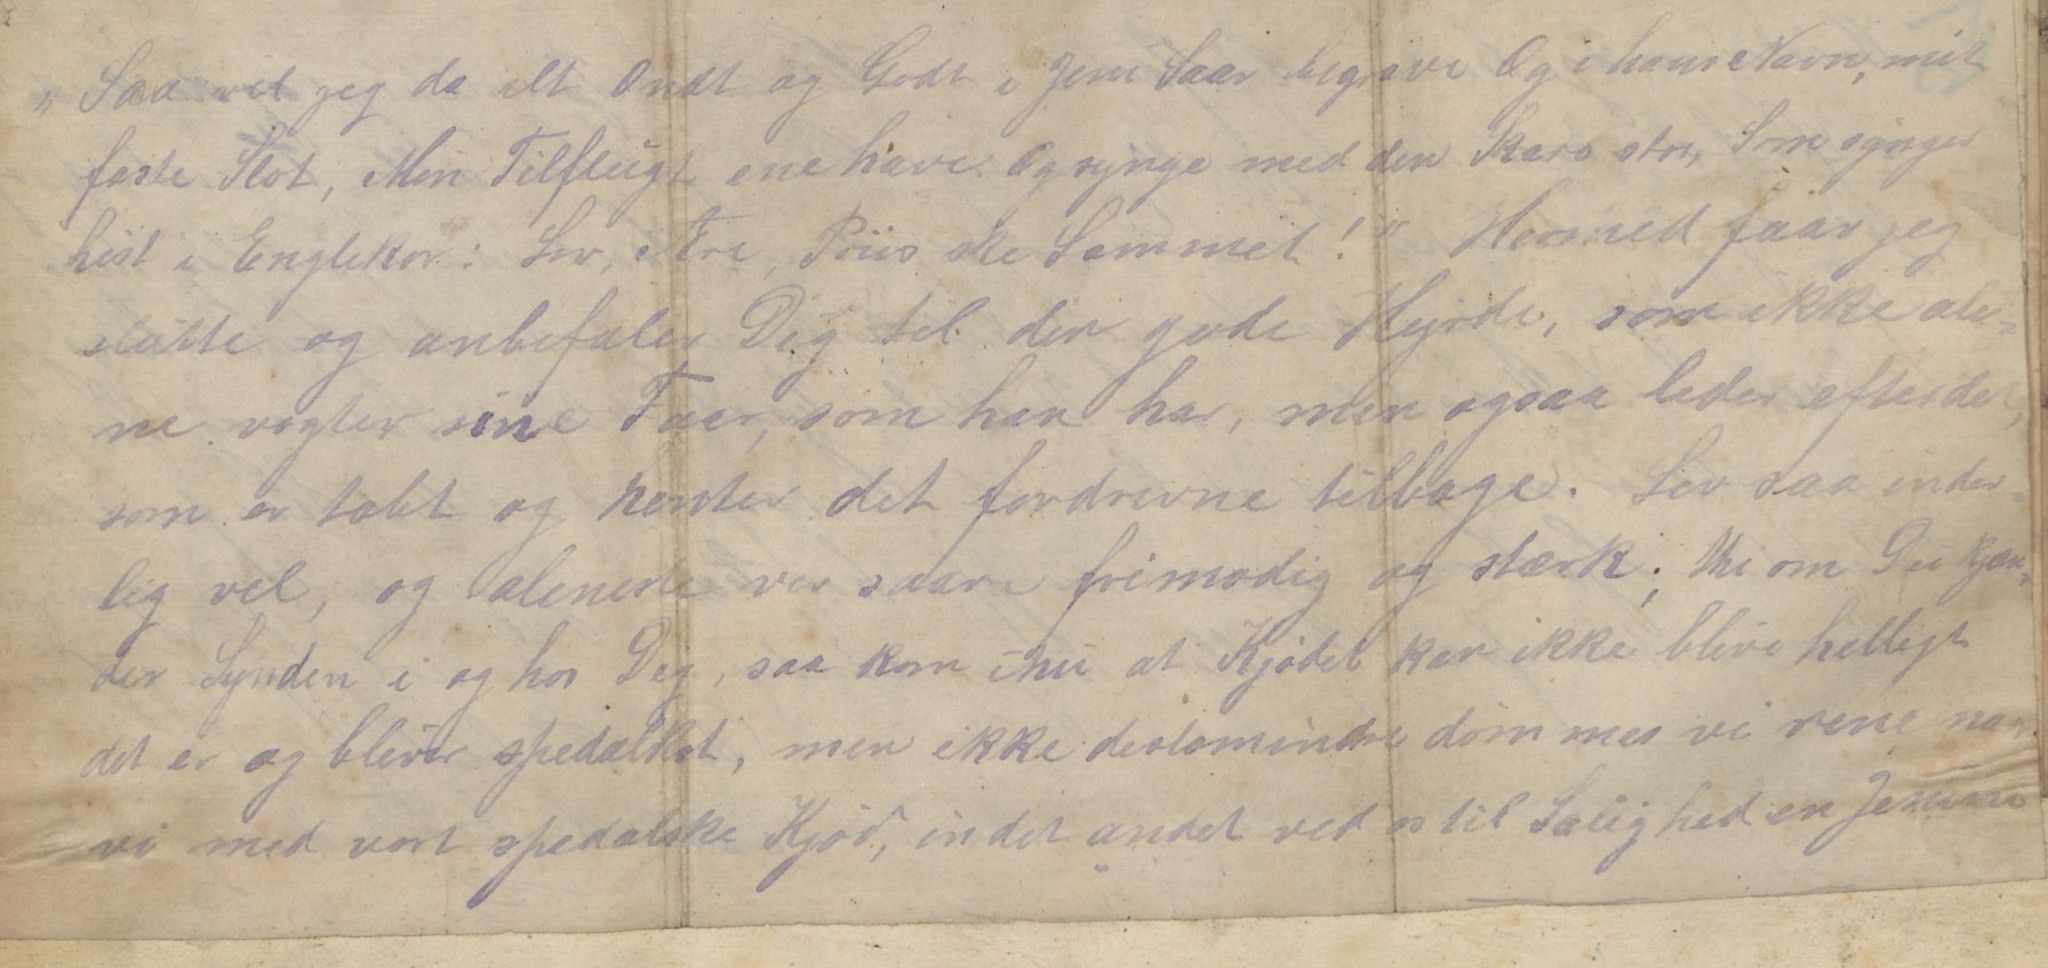 „Saa vil jeg da alt Ondt og Godt i Jesu Saar begrave Og i hans Navn, mit
faste Slot, Min Tilflugt ene have Og synge med den Skara stor, Som synger
hist i Englekor: Lov, Ære, Priis ske Lammet!" Hvormed faar jeg
slutte og anbefaler Dig til den gode Hyrde, som ikke ale-
ne vogter sine Faar, som han har, men ogsaa leder efter det,
som er tabt og henter det fordrevne tilbage. Lev saa inder-
lig vel, og aleneste ver saare frimodig og stærk; thi om Du kjæn-
der Synden i og hos Dig, saa kom ihu at Kjødet kan ikke blive helligt
det er og bliver spedalskt, men ikke destomindre dømmes vi rene naar
vi med vort spedalske Kjød, intet andet ved os til Salighed en Jesum